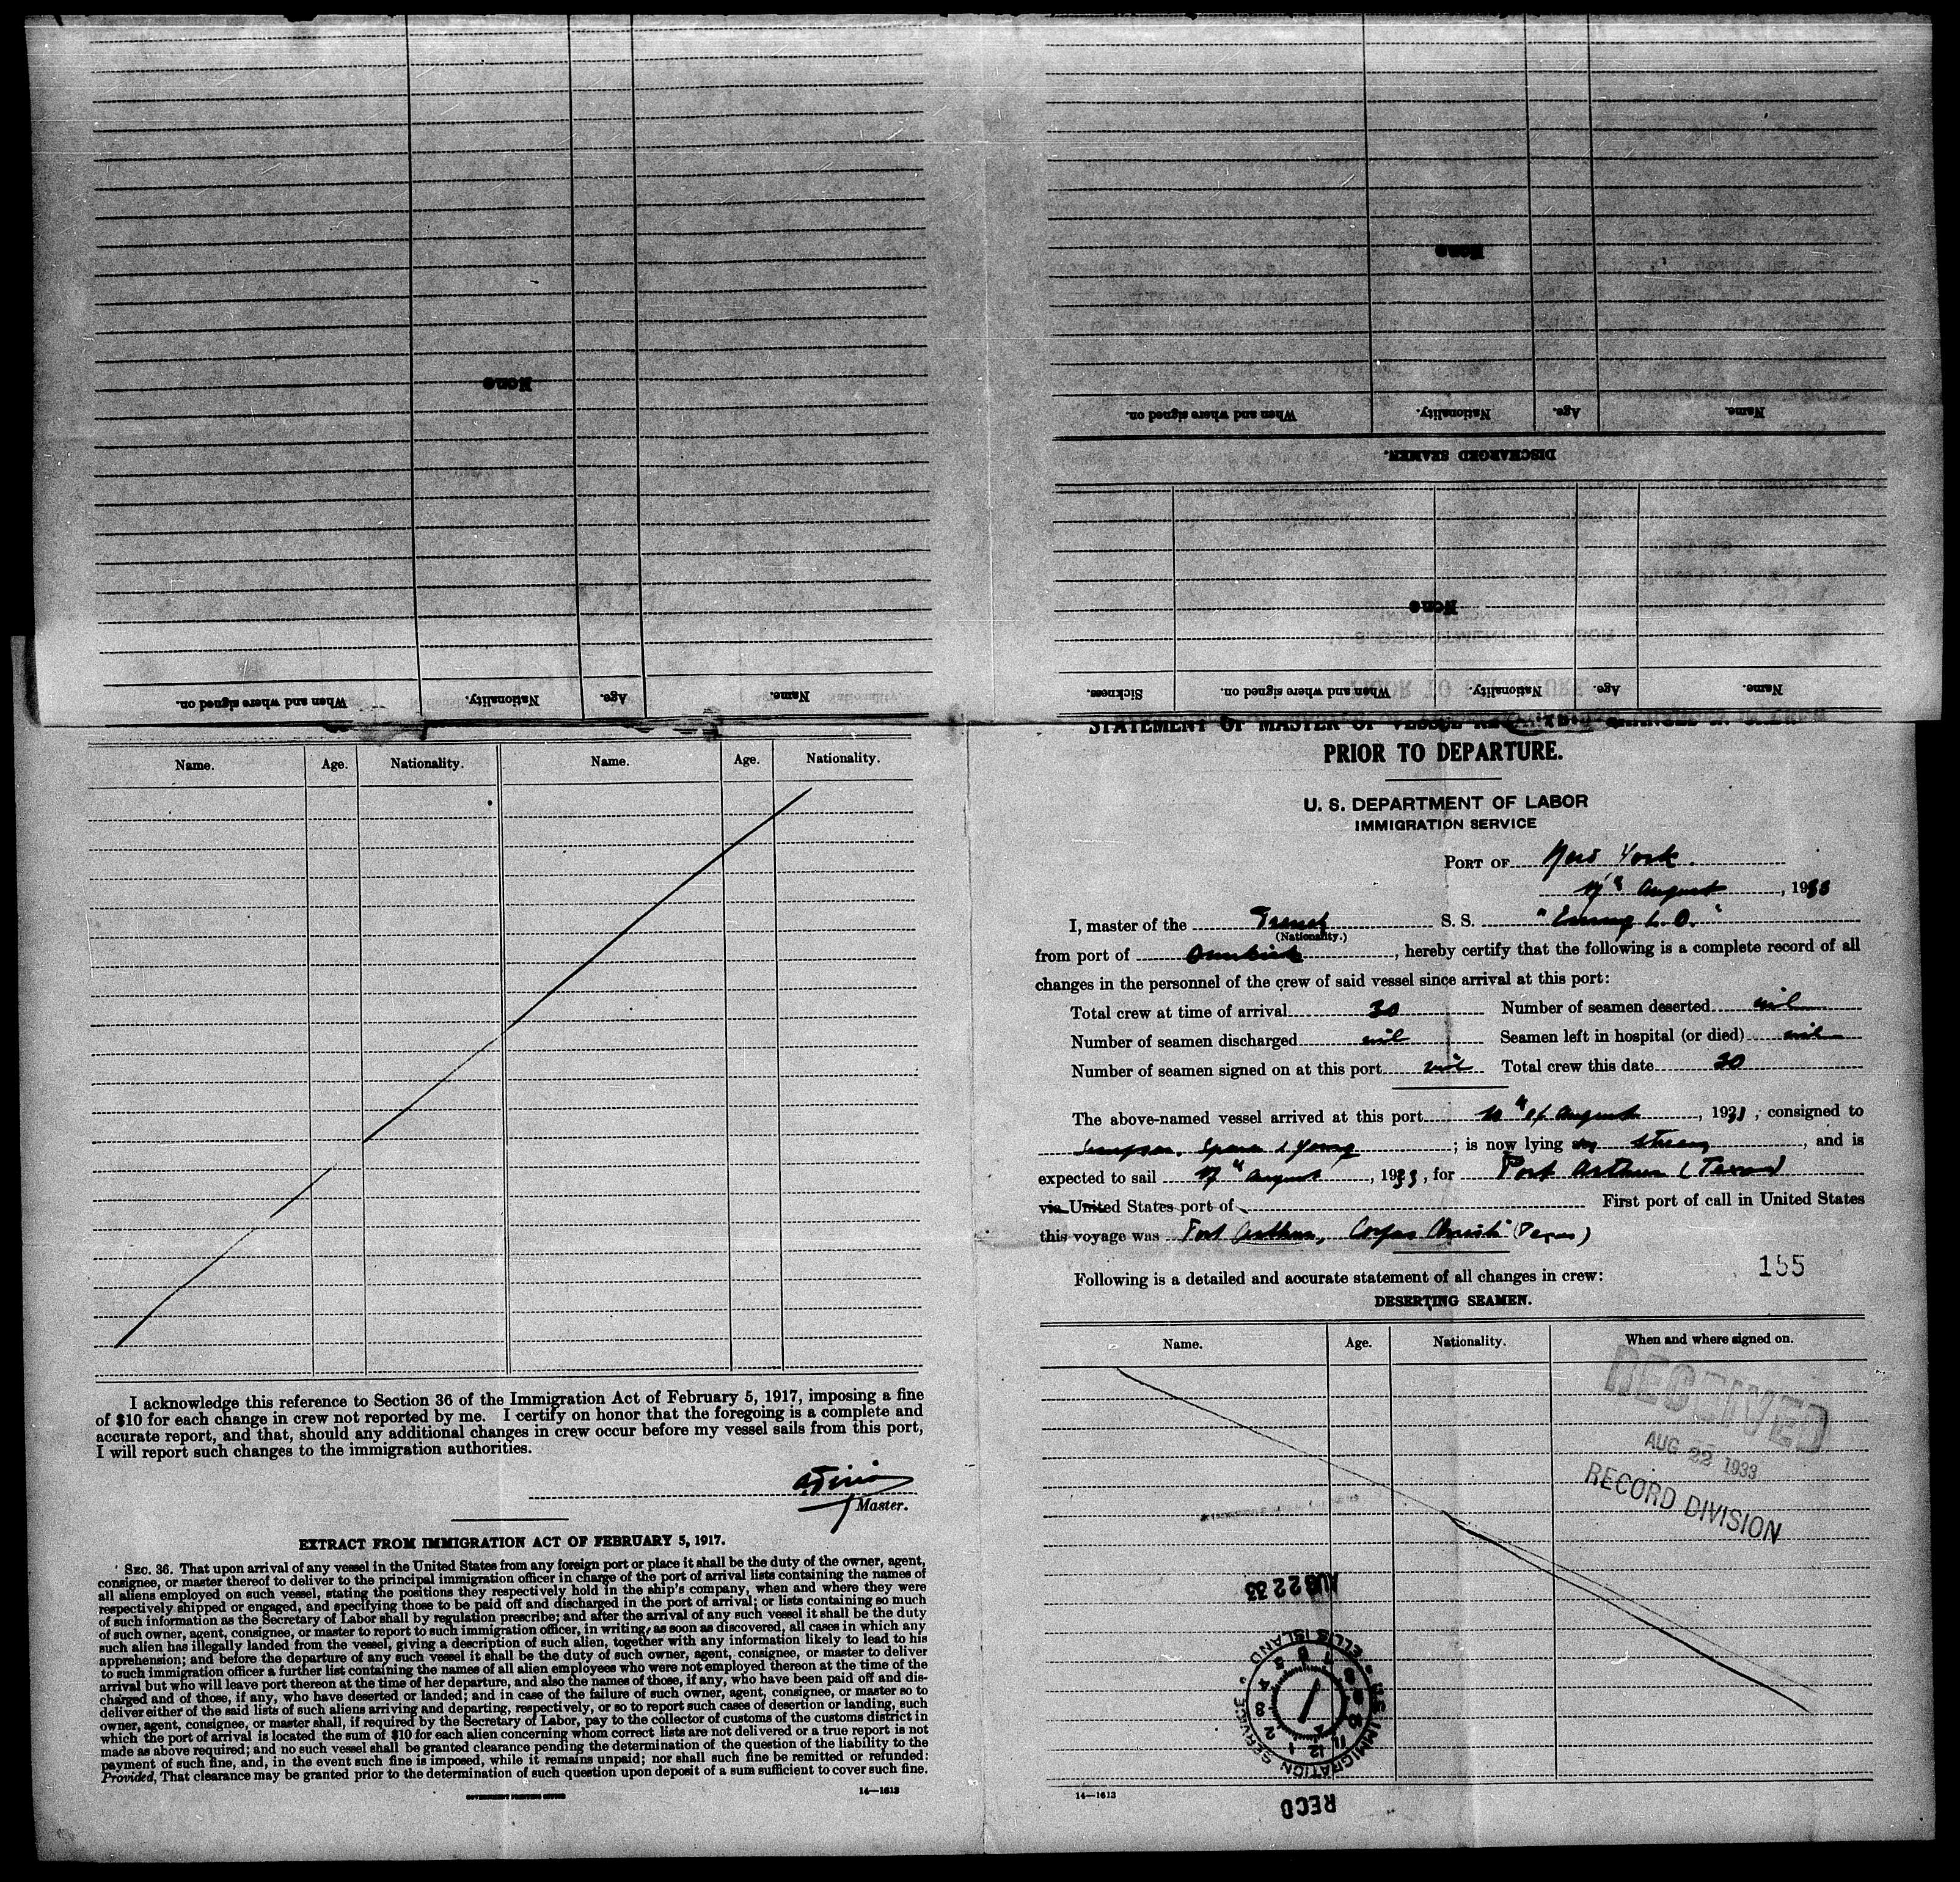 None
When and where signed on.
Nationality.
Age.
Name.
None
When and where signed on.
Nationality.
Age.
Name.
DISCHARGED SEAMEN.
None
Sickness.
When and where signed on.
Nationality.
Age.
Name.
Name.
Age.
Nationality.
Name.
Age.
Nationality.
I acknowledge this reference to Section 36 of the Immigration Act of February 5, 1917, imposing a fine
of $10 for each change in crew not reported by me. I certify on honor that the foregoing is a complete and
accurate report, and that, should any additional changes in crew occur before my vessel sails from this port,
I will report such changes to the immigration authorities.
Master.
EXTRACT FROM IMMIGRATION ACT OF FEBRUARY 5, 1917.
SEC. 36. That upon arrival of any vessel in the United States from any foreign port or place it shall be the duty of the owner, agent,
consignee, or master thereof to deliver to the principal immigration officer in charge of the port of arrival lists containing the names of
all aliens employed on such vessel, stating the positions they respectively hold in the ship's company, when and where they were
respectively shipped or engaged, and specifying those to be paid off and discharged in the port of arrival; or lists containing so much
of such information as the Secretary of Labor shall by regulation prescribe; and after the arrival of any such vessel it shall be the duty
of such owner, agent, consignee, or master to report to such immigration officer, in writing, as soon as discovered, all cases in which any
such alien has illegally landed from the vessel, giving a description of such alien, together with any information likely to lead to his
apprehension; and before the departure of any such vessel it shall be the duty of such owner, agent, consignee, or master to deliver
to such immigration officer a further list containing the names of all alien employees who were not employed thereon at the time of the
arrival but who will leave port thereon at the time of her departure, and also the names of those, if any, who have been paid off and dis-
charged and of those, if any, who have deserted or landed; and in case of the failure of such owner, agent, consignee, or master so to
deliver either of the said lists of such aliens arriving and departing, respectively, or so to report such cases of desertion or landing, such
owner, agent, consignee, or master shall, if required by the Secretary of Labor, pay to the collector of customs of the customs district in
which the port of arrival is located the sum of $10 for each alien concerning whom correct lists are not delivered or a true report is not
made as above required; and no such vessel shall be granted clearance pending the determination of the question of the liability to the
payment of such fine, and, in the event such fine is imposed, while it remains unpaid; nor shall such fine be remitted or refunded:
Provided, That clearance may be granted prior to the determination of such question upon deposit of a sum sufficient to cover such fine.
GOVERNMENT PRINTING OFFICE
14—1613
STATEMENT OF MASTER OF VESSEL
PRIOR TO DEPARTURE.
U. S. DEPARTMENT OF LABOR
IMMIGRATION SERVICE
PORT OF New York.
17th August, 1933
I, master of the French S. S. "Emmy L. D."
(Nationality.)
from port of Dunkirk, hereby certify that the following is a complete record of all
changes in the personnel of the crew of said vessel since arrival at this port:
Total crew at time of arrival 30 Number of seamen deserted nil
Number of seamen discharged nil Seamen left in hospital (or died) nil
Number of seamen signed on at this port nil Total crew this date 30
The above-named vessel arrived at this port of August, 1933, consigned to
Simpson, Spence & Young; is now lying stream, and is
expected to sail 17th August, 1933, for Port Arthur (Texas)
via United States port of First port of call in United States
this voyage was Port Arthur, Corpus Christi (Texas)
155
Following is a detailed and accurate statement of all changes in crew:
DESERTING SEAMEN.
Name.
Age.
Nationality.
When and where signed on.
RECEIVED
AUG 22 1933
RECORD DIVISION
AUG 22 33
U.S. IMMIGRATION SERVICE • ELLIS ISLAND •
1 2 3 4 5 6 7 8 9 10 11 12
RECD
14—1613